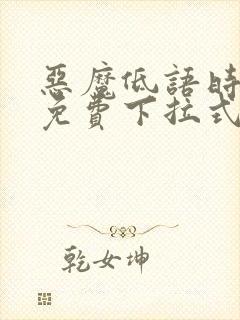 惡魔低語時
免費下拉式
乾女坤